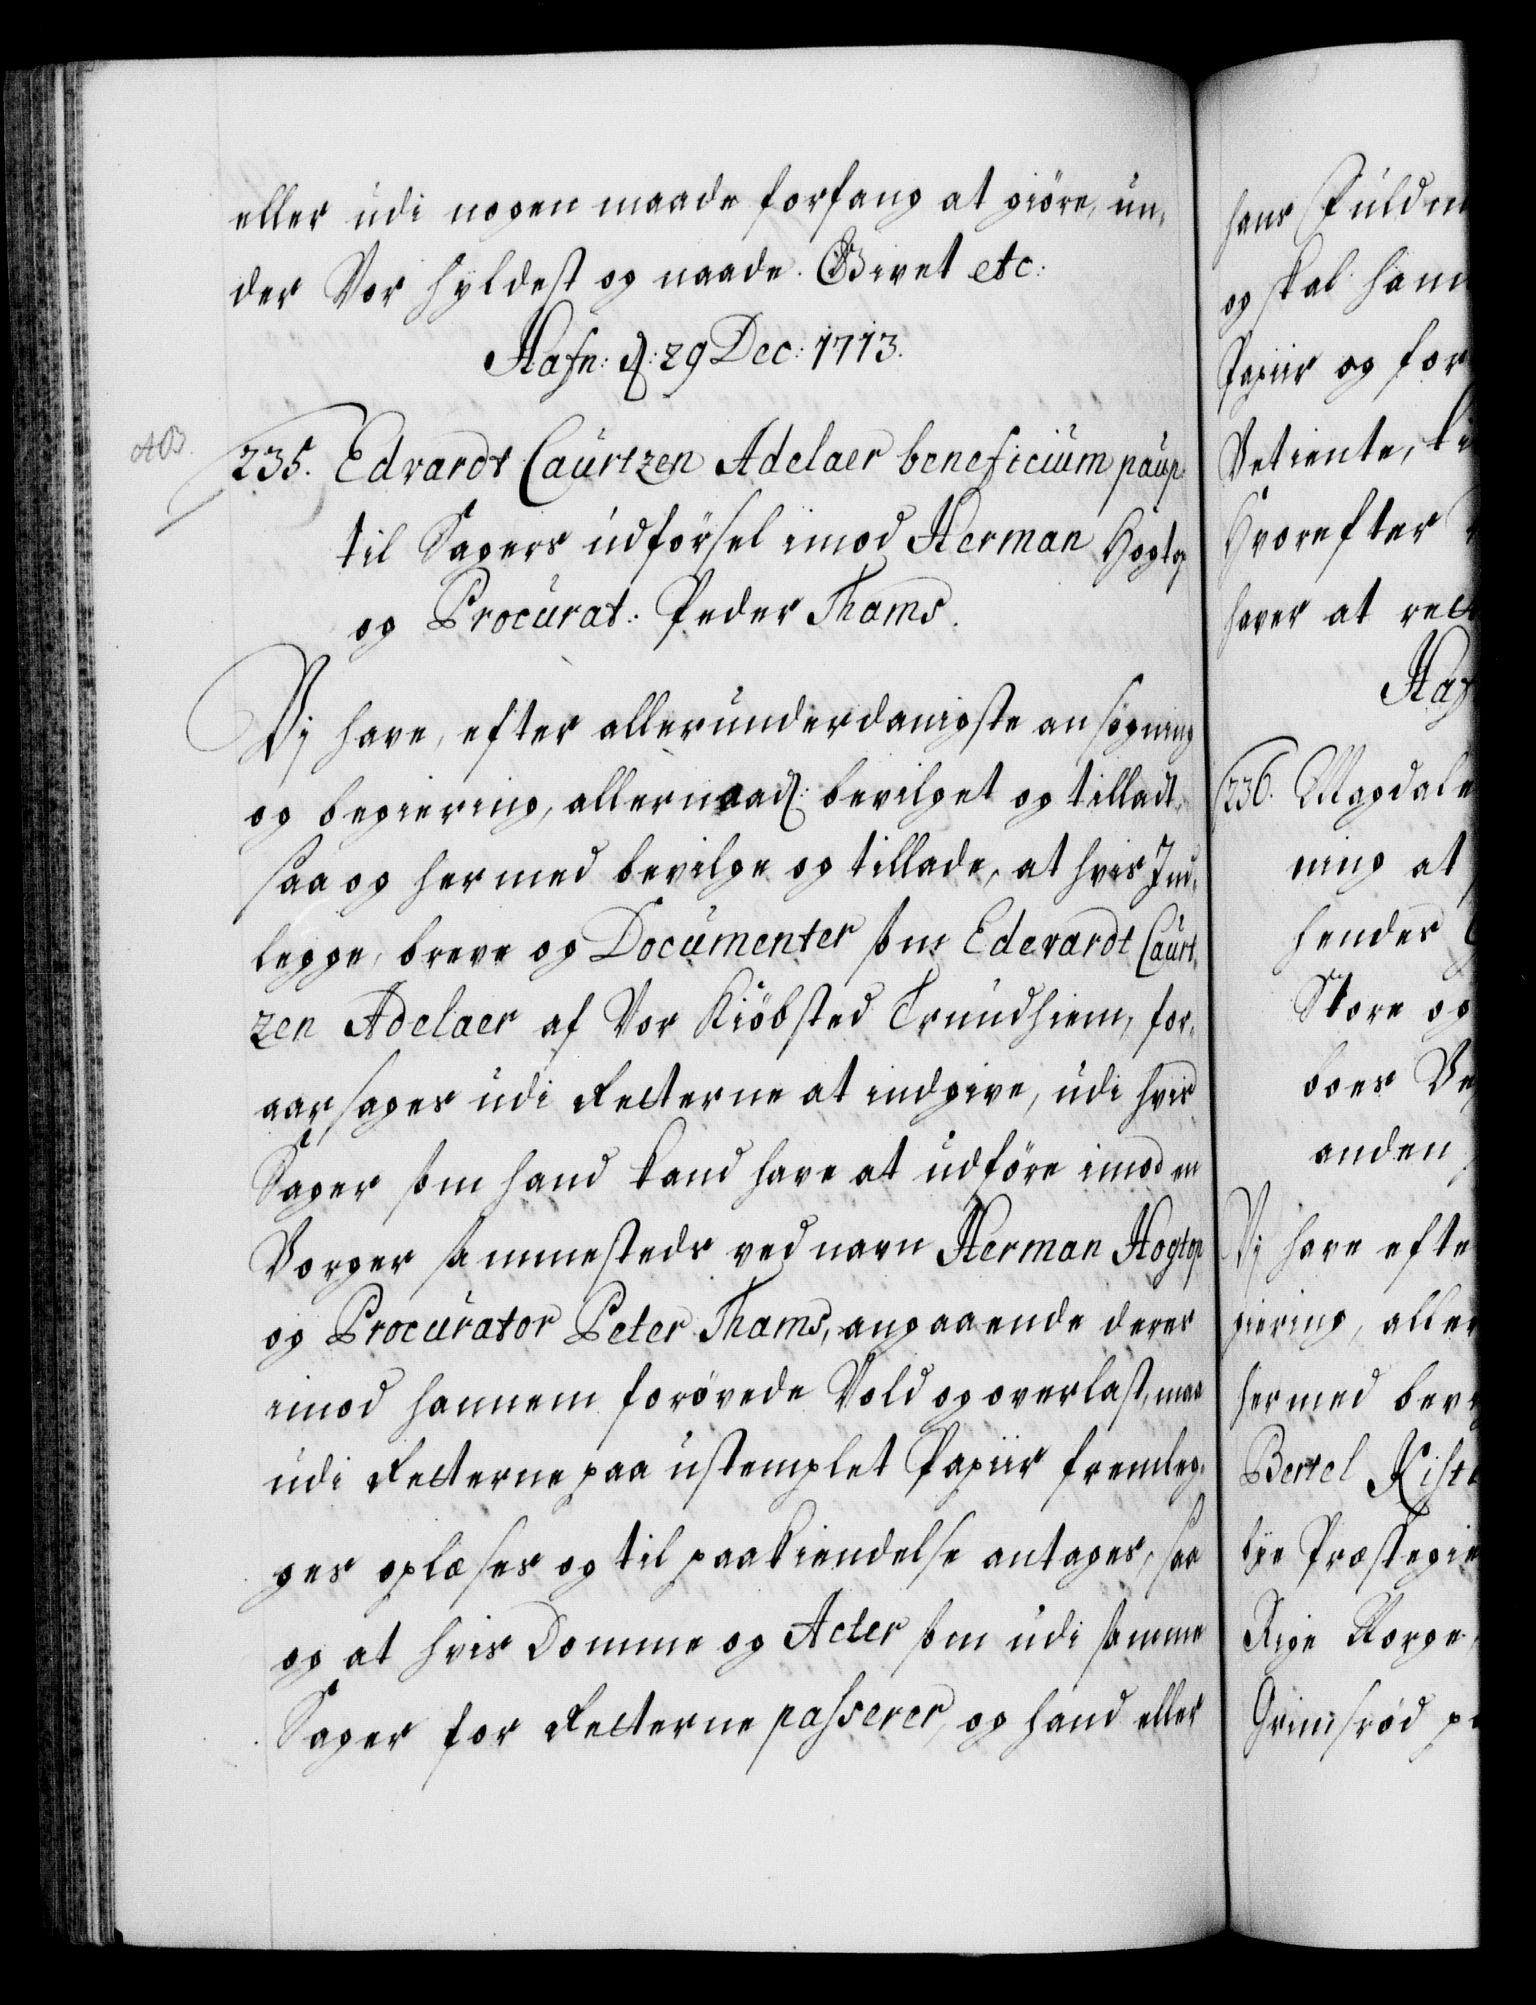 eller udi nogen maade forfang at giöre, un-
der Vor hyldest og naade. Givet etc:
Hafn: d: 29 Dec: 1713.
235. Edvardt Caurtzen Adelaer beneficium paup:
til Sagers udförsel imod Herman
og Procurat: Peder Thams.
Vj have, efter allerunderdanigste ansögning
og begiering, allernaad: bevilget og tilladt,
saa og hermed bevilge og tillade, at hvis Ind-
legge, breve og Documenter som Edevardt Caurt-
zen Adelaer af Vor Kiöbsted Trundhiem, for-
aarsages udi Retterne at indgive, udi hvis
Sager som hand kand have at udföre imod en
Borger sammesteds ved navn Herman
og Procurator Peter Thams, angaaende deres
imod hannem forövede Vold og overlast, maa
udi Retterne paa ustemplet Papiir fremleg-
ges oplæses og til paakiendelse antages, saa
og at hvis Domme og Acter som udi samme
Sager for Retterne passerer, og hand eller
hans Fuldm
og skal ham
Papiir og for
Vetiente,
Hvorefter
haver at rett
Haf
236. Magdale
ning at
hendes
Store og
boes
anden
Vj have efte
giering, aller
hermed bev
Bertel Kist
bye Præstegie
Rige Norge,
Grimsröd p